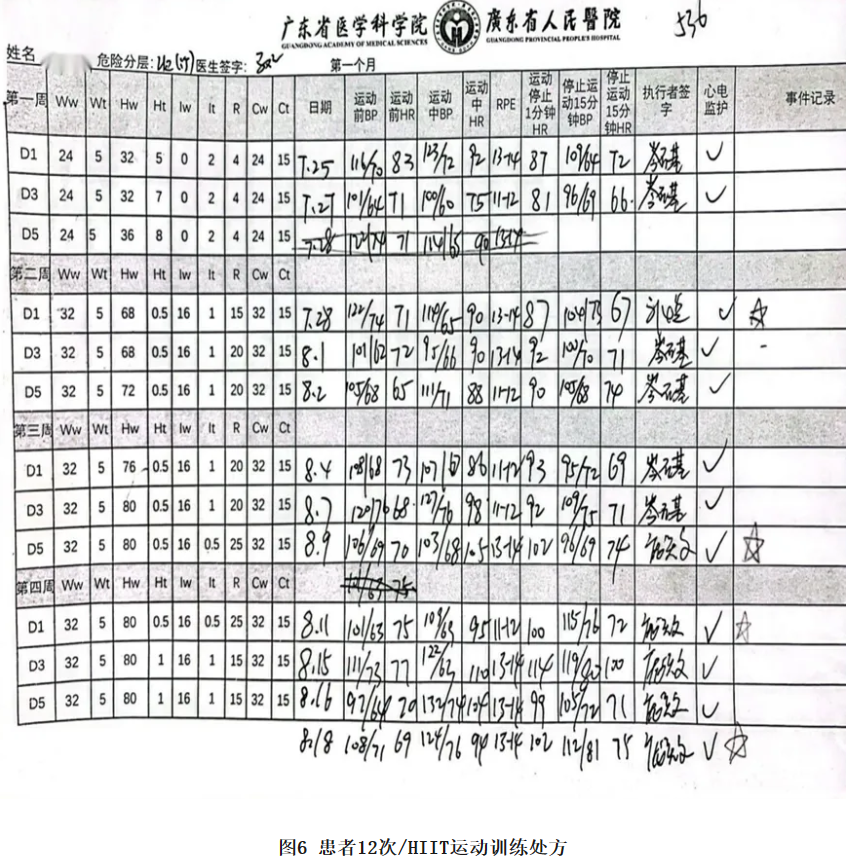 广东省医学科学院 廣东省人民醫院 536
GUANGDONG ACADEMY OF MEDICAL SCIENCES GUANGDONG PROVINCIAL PEOPLE'S HOSPITAL
姓名 危险分层: 医生签字: 第一个月
第一周 Ww Wt Hw Ht Iw It R Cw Ct 日期 运动前BP 运动前HR 运动中BP 运动中HR RPE 运动停止1分钟HR 停止运动15分钟BP 停止运动15分钟HR 执行者签字 心电监护 事件记录
D1 24 5 32 5 0 2 4 24 15 7.25 116/70 83 123/72 92 13-14 87 109/64 72 岑石基 ✓
D3 24 5 32 7 0 2 4 24 15 7.27 101/64 71 100/60 75 11-12 81 96/69 66 岑石基 ✓
D5 24 5 36 8 0 2 4 24 15 7.28 122/74 71 114/65 90 13-14
第二周 Ww Wt Hw Ht Iw It R Cw Ct
D1 32 5 68 0.5 16 1 15 32 15 7.28 122/74 71 114/65 90 13-14 87 104/73 67 ✓ ☆
D3 32 5 68 0.5 16 1 20 32 15 8.1 101/62 72 95/66 90 13-14 92 100/70 71 岑石基 ✓ -
D5 32 5 72 0.5 16 1 20 32 15 8.2 105/68 65 111/71 88 11-12 90 105/68 74 岑石基 ✓
第三周 Ww Wt Hw Ht Iw It R Cw Ct
D1 32 5 76 0.5 16 1 20 32 15 8.4 108/68 73 86 11-12 93 95/72 69 岑石基 ✓
D3 32 5 80 0.5 16 1 20 32 15 8.7 120/76 68 127/76 98 11-12 92 109/75 71 岑石基 ✓
D5 32 5 80 0.5 16 0.5 25 32 15 8.9 106/69 70 103/68 105 13-14 102 96/69 74 ✓ ☆
第四周 Ww Wt Hw Ht Iw It R Cw Ct 75
D1 32 5 80 0.5 16 0.5 25 32 15 8.11 101/63 75 109/63 95 11-12 100 115/76 72 ✓ ☆
D3 32 5 80 1 16 1 15 32 15 8.15 111/73 77 122/63 110 13-14 114 119/90 100 ✓
D5 32 5 80 1 16 1 15 32 15 8.16 97/64 70 132/74 104 13-14 99 105/72 71 ✓
8.18 108/71 69 124/76 94 13-14 102 112/81 75 ✓ ☆
图6 患者12次/HIIT运动训练处方